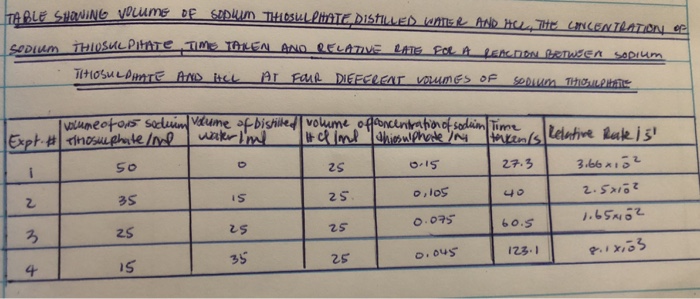 TABLE SHOWING VOLUME OF SODIUM THIOSULPHATE, DISTILLED WATER AND HCL, THE CONCENTRATION OF
SODIUM THIOSULPHATE, TIME TAKEN AND RELATIVE RATE FOR A REACTION BETWEEN SODIUM
THIOSULPHATE AND HCL AT FOUR DIFFERENT VOLUMES OF SODIUM THIOSULPHATE
Expt. # volume of 0.15 sodium thiosulphate /ml Volume of Distilled water /ml volume of HCl /ml concentration of sodium thiosulphate /M Time taken/s Relative Rate / s⁻¹
1 50 0 25 0.15 27.3 3.66 x 10⁻²
2 35 15 25 0.105 40 2.5 x 10⁻²
3 25 25 25 0.075 60.5 1.65 x 10⁻²
4 15 35 25 0.045 123.1 8.1 x 10⁻³